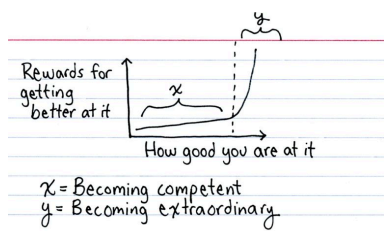 y
Rewards for
getting
better at it
x
How good you are at it
x = Becoming competent
y = Becoming extraordinary